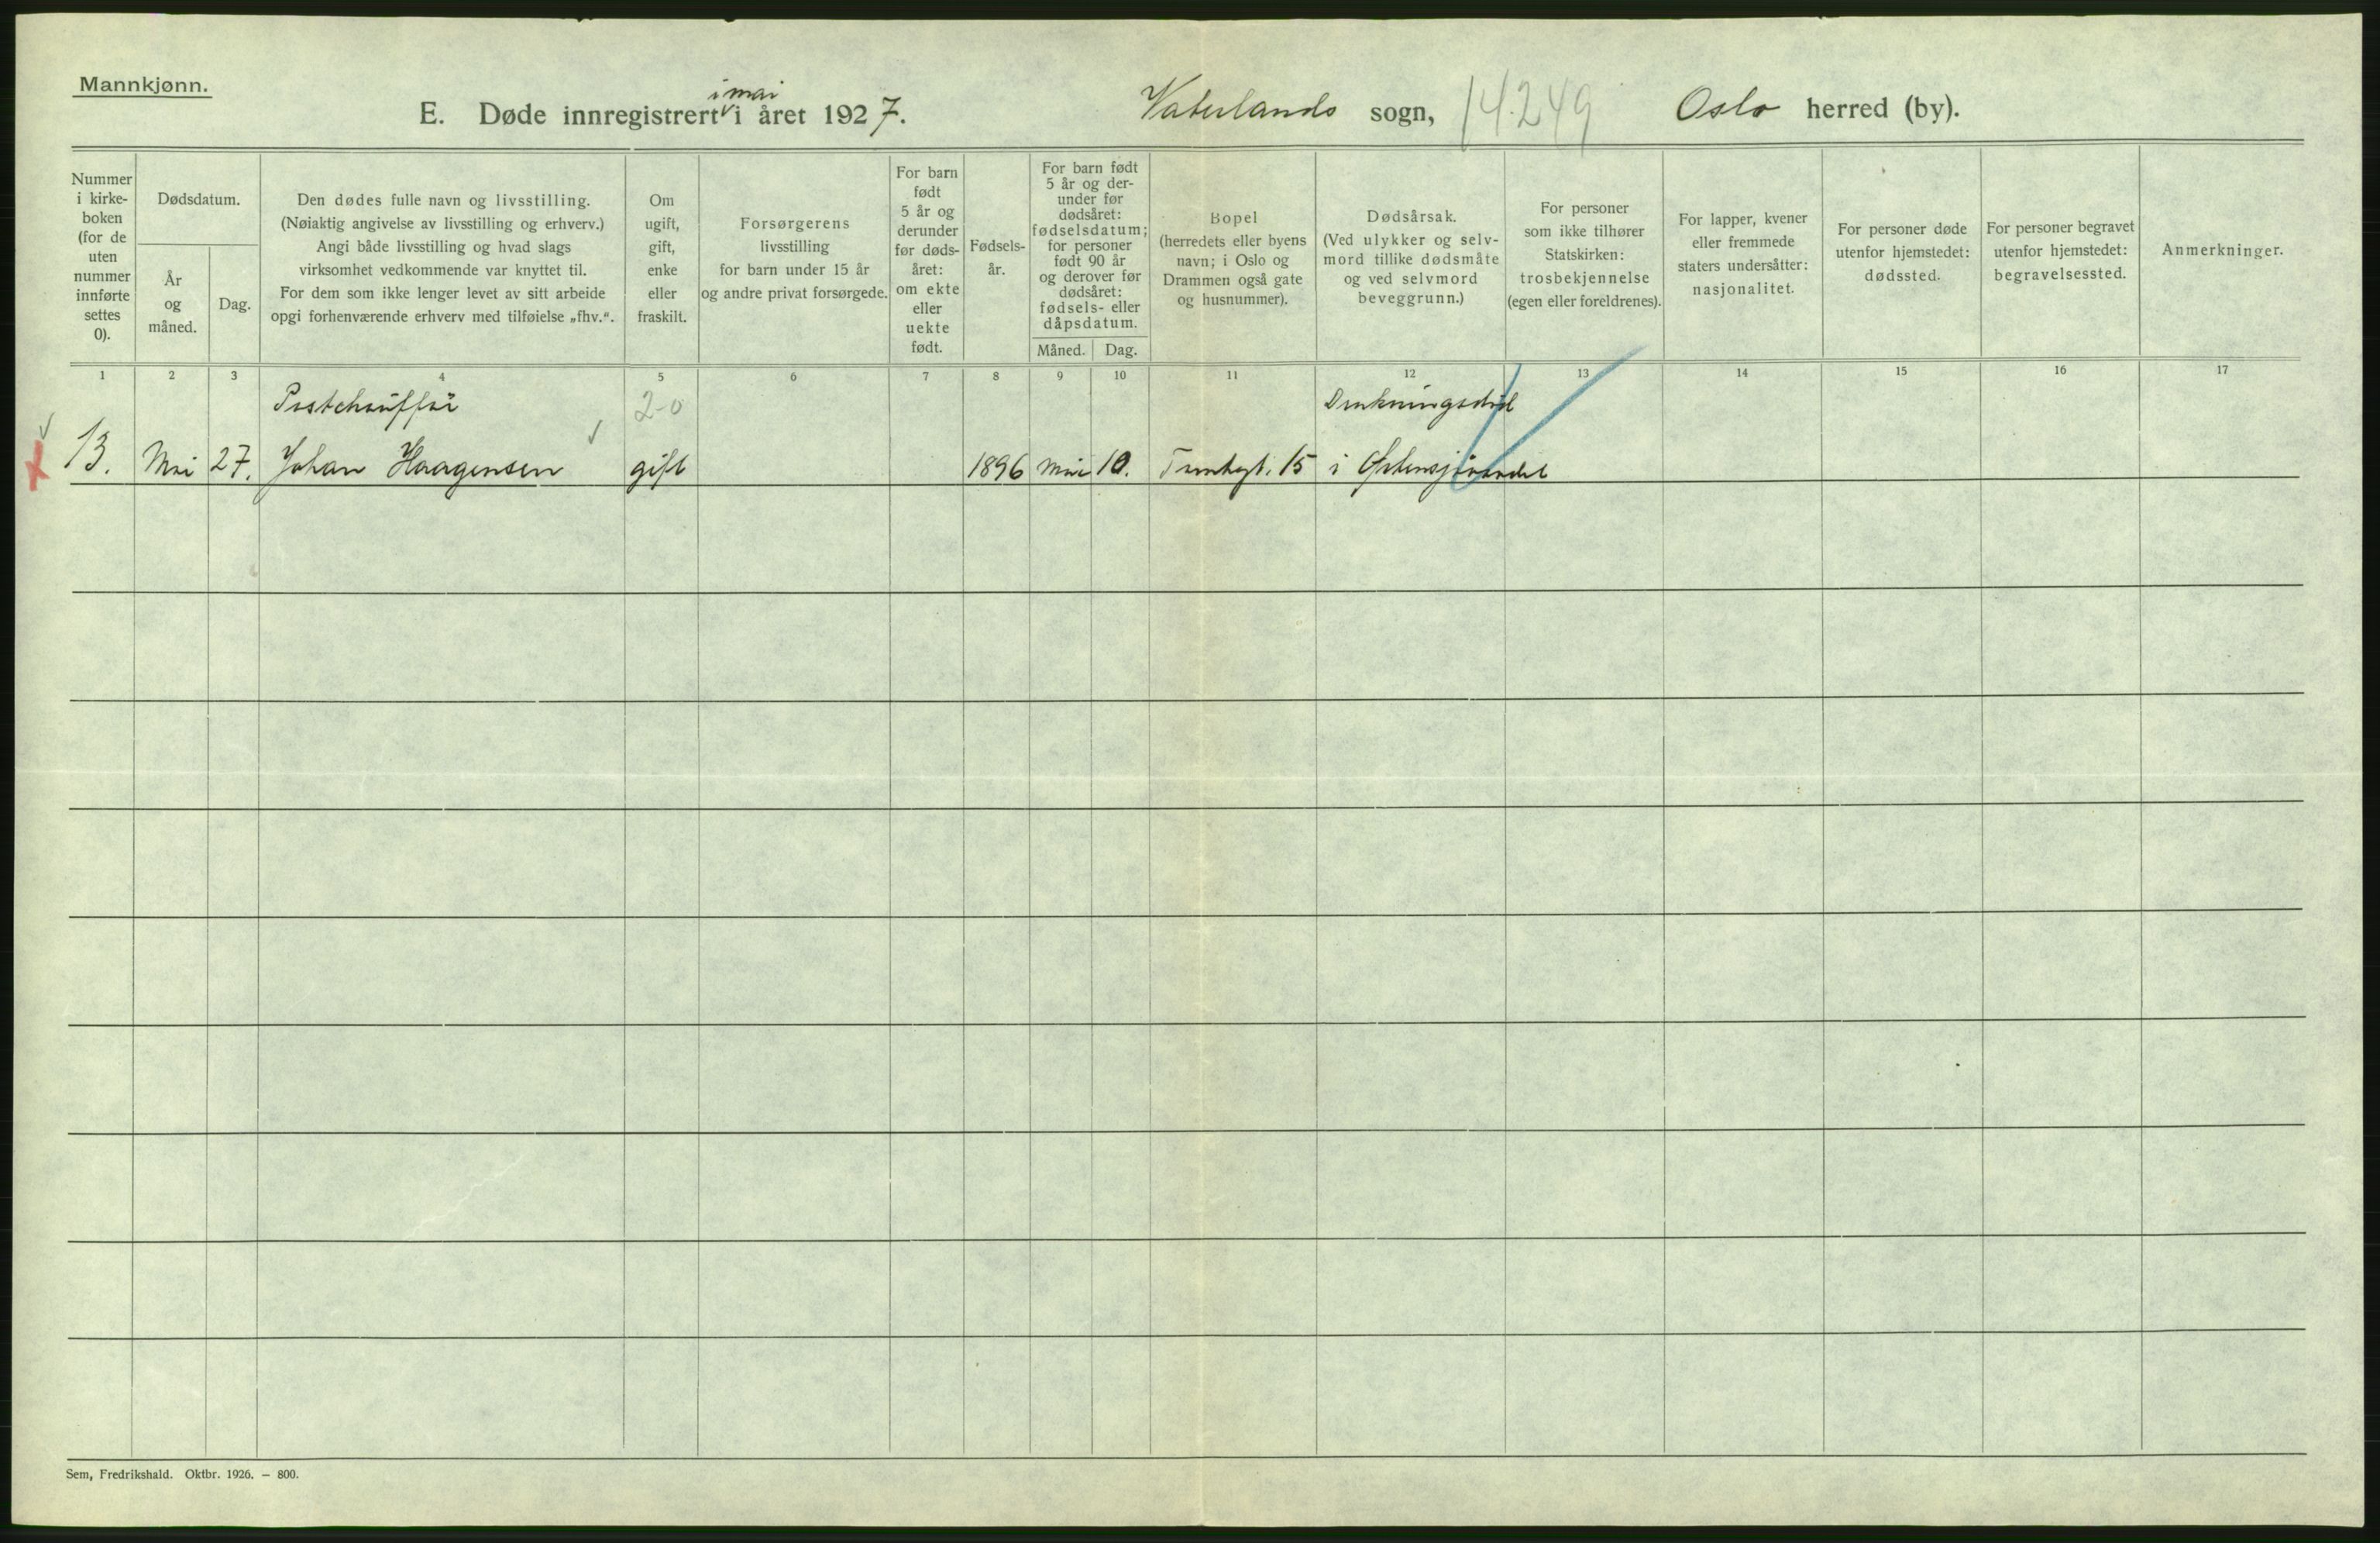 Mannkjønn.
i mai
E. Døde innregistrert i året 1927. Vaterlands sogn, 14.249 Oslo herred (by).
Nummer i kirke- boken (for de uten nummer innførte settes 0).
Dødsdatum.
År og måned.
Dag.
Den dødes fulle navn og livsstilling.
(Nøiaktig angivelse av livsstilling og erhverv.)
Angi både livsstilling og hvad slags
virksomhet vedkommende var knyttet til.
For dem som ikke lenger levet av sitt arbeide
opgi forhenværende erhverv med tilføielse „fhv.“.
Om ugift, gift, enke eller fraskilt.
Forsørgerens
livsstilling
for barn under 15 år
og andre privat forsørgede.
For barn født 5 år og derunder før døds- året: om ekte eller uekte født.
Fødsels- år.
For barn født 5 år og der- under før dødsåret: fødselsdatum; for personer født 90 år og derover før dødsåret: fødsels- eller dåpsdatum.
Måned. Dag.
Bopel
(herredets eller byens
navn; i Oslo og
Drammen også gate
og husnummer).
Dødsårsak.
(Ved ulykker og selv-
mord tillike dødsmåte
og ved selvmord
beveggrunn.)
For personer
som ikke tilhører
Statskirken:
trosbekjennelse
(egen eller foreldrenes).
For lapper, kvener
eller fremmede
staters undersåtter:
nasjonalitet.
For personer døde
utenfor hjemstedet:
dødssted.
For personer begravet
utenfor hjemstedet:
begravelsessted.
Anmerkninger.
1 2 3 4 5 6 7 8 9 10 11 12 13 14 15 16 17
Postchauffør 2-0 Drukningsdød
13. Mai 27. Johan Haagensen gift 1896 Mai 10. Tomtegt. 15 i Østensjøvandet
Sem, Fredrikshald. Oktbr. 1926. — 800.